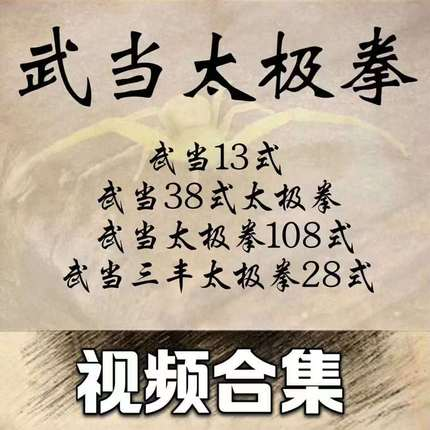 武当太极拳
武当13式
武当38式太极拳
武当太极拳108式
武当三丰太极拳28式
视频合集